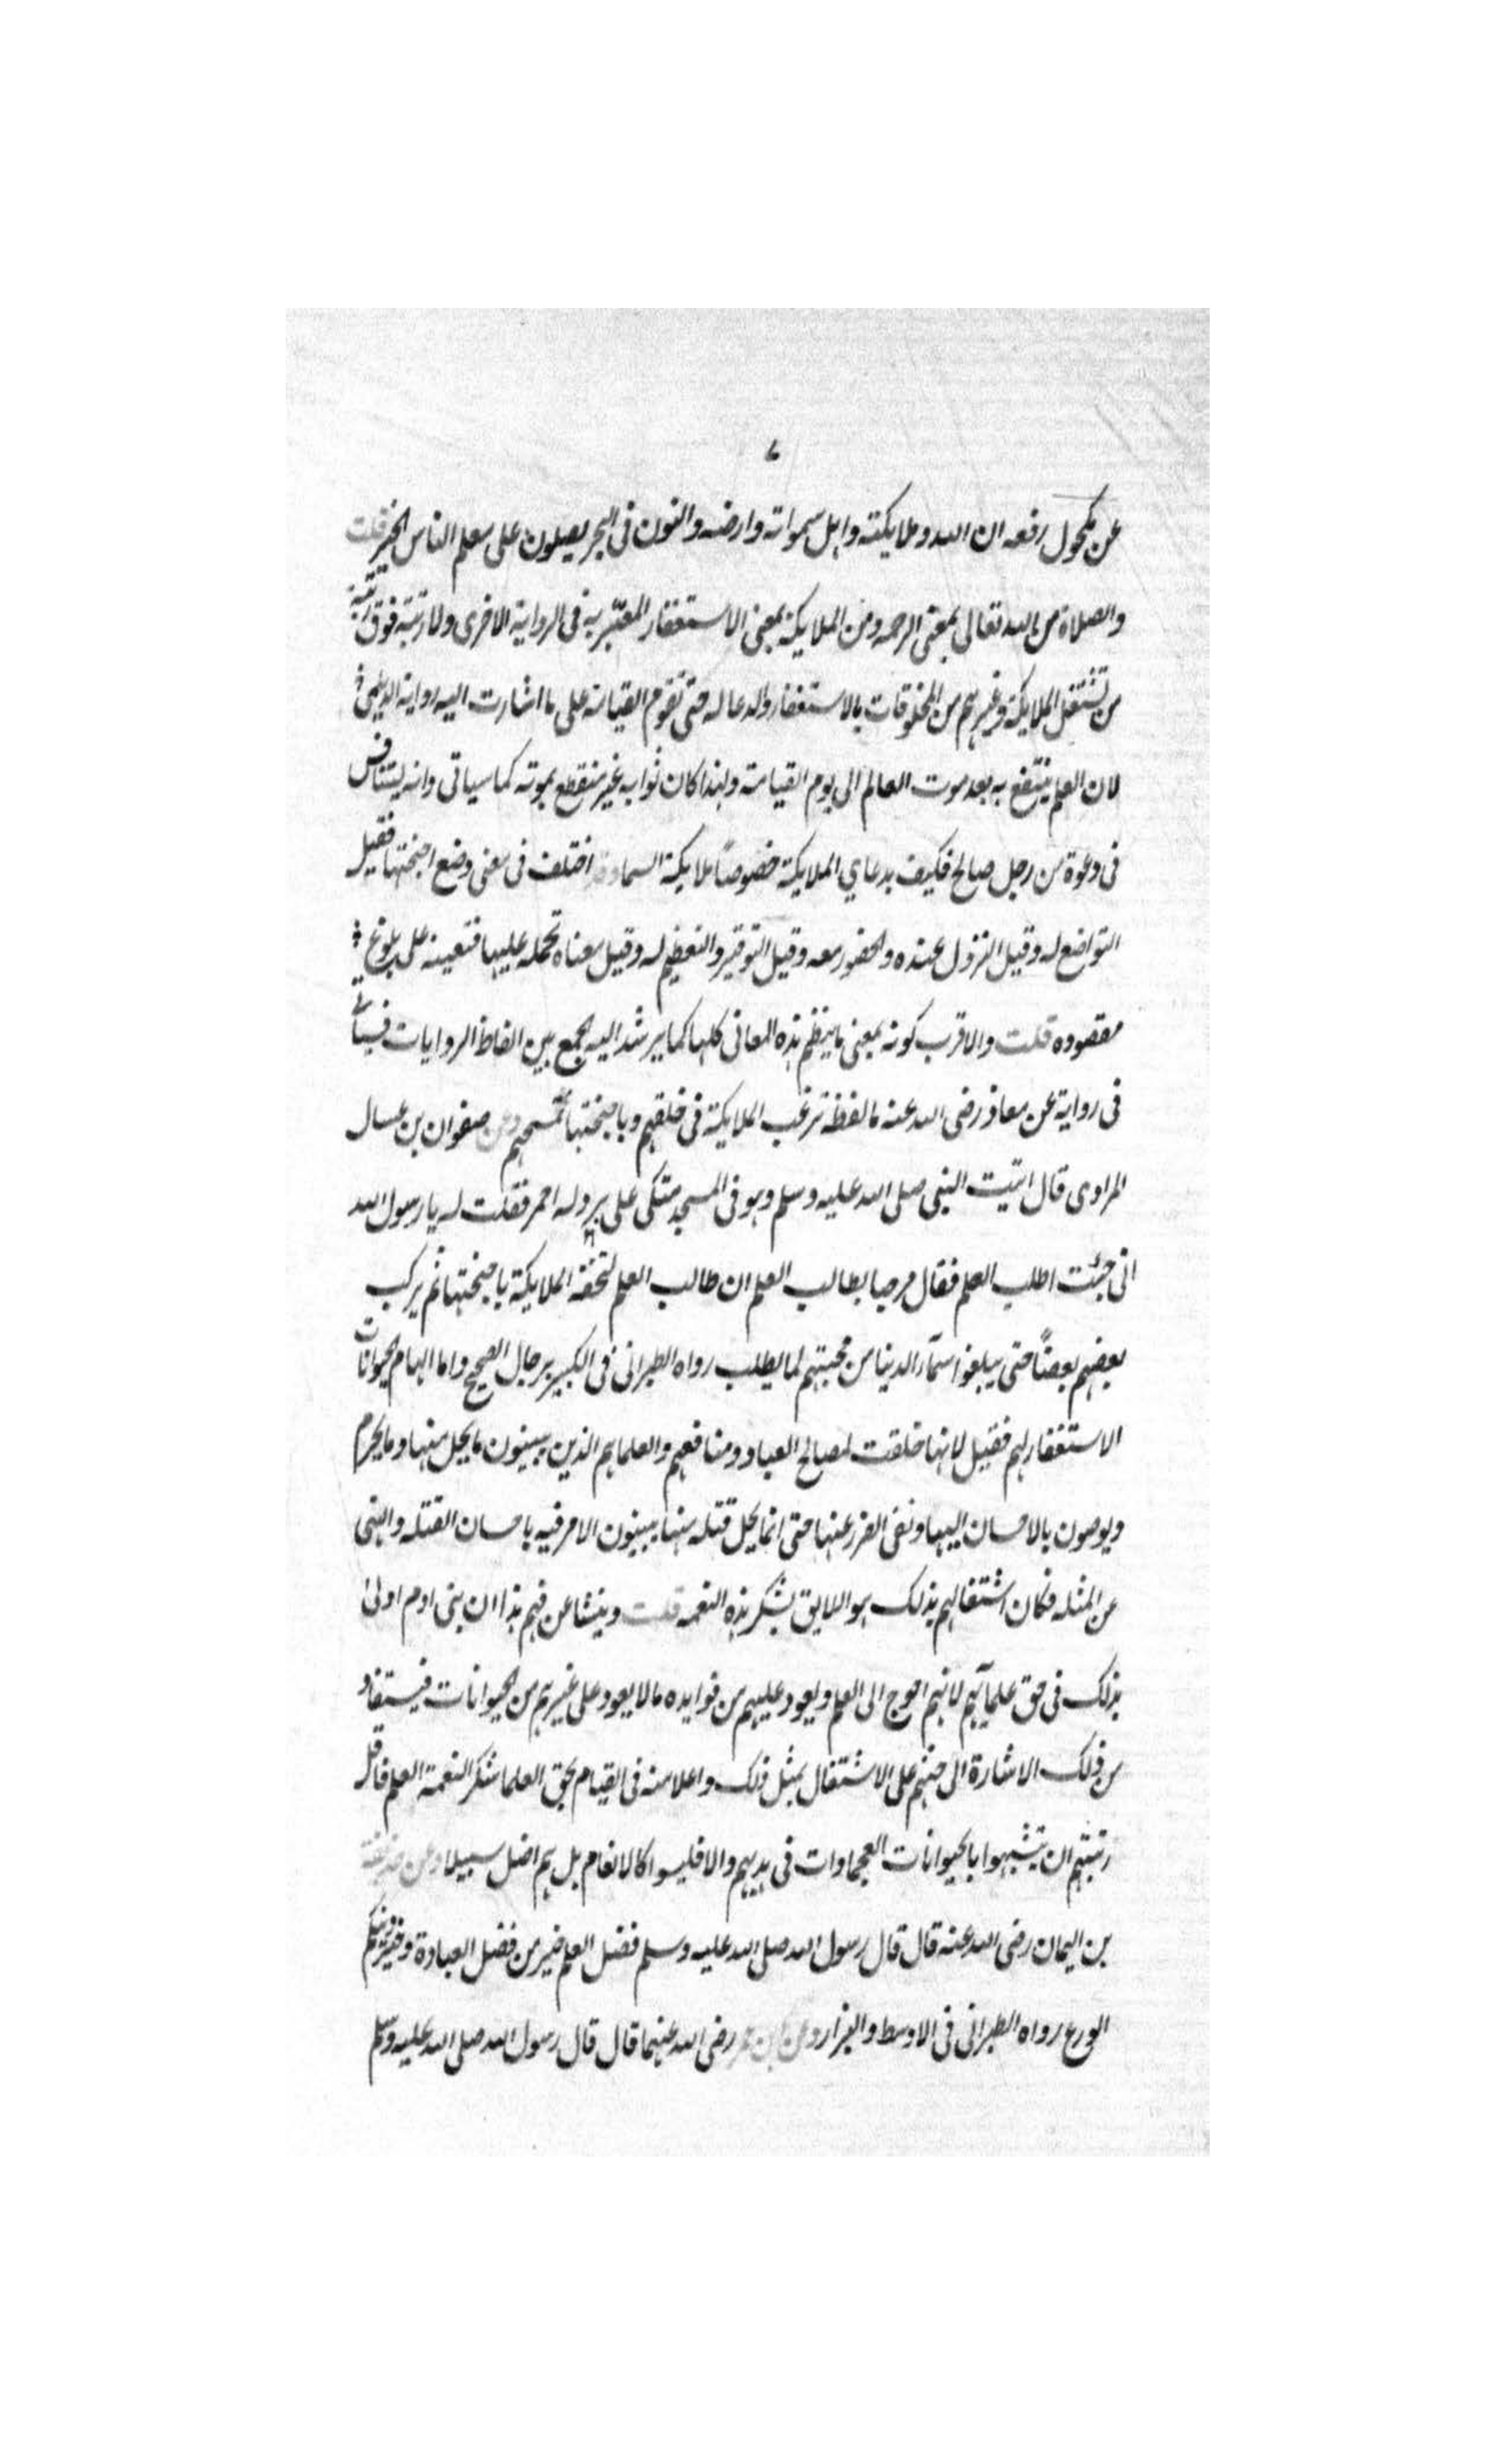 ٧
عن مكحول رفعه ان الله وملايكته واهل سمواته وارضه والنون فى البحر يصلون على معلم الناس الخير قلت
والصلاة من الله تعالى بمعنى الرحمه ومن الملايكة بمعنى الاستغفار المعبّر به فى الرواية الاخرى ولا رتبة فوق رتبة
من تشتغل الملايكة وغيرهم من المخلوقات بالاستغفار والدعا له حتى تقوم القيامة على ما اشارت اليه رواية الديلمي
لان العلم ينتفع به بعد موت العالم الى يوم القيامة ولهذا كان ثوابه غير منقطع بموته كما سياتى وانه ليتنافس
فى دعوة من رجل صالح فكيف بدعاي الملايكة خصوصًا ملايكة السما وقد اختلف فى معنى وضع اجنحتها فقيل
التواضع له وقيل النزول عنده والحضور معه وقيل التوقير والتعظيم له وقيل معناه تحمله عليها فتعينه على بلوغ
مقصوده قلت والاقرب كونه بمعنى ما ينظم هذه المعانى كلها كما يرشد اليه الجمع بين الفاظ الروايات فسياتى
فى رواية عن معاذ رضى الله عنه ما لفظه ترغب الملايكة فى خلقهم وباجنحتها تمسحهم وعن صفوان بن عسال
المرادى قال اتيت النبى صلى الله عليه وسلم وهو فى المسجد متكى على برد له احمر فقلت له يا رسول الله
انى جئت اطلب العلم فقال مرحبا بطالب العلم ان طالب العلم لتحفه الملايكة باجنحتها ثم يركب
بعضهم بعضًا حتى يبلغوا سمآء الدنيا من محبتهم لما يطلب رواه الطبرانى فى الكبير برجال الصحيح واما الهام الحيوانات
الاستغفار لهم فقيل لانها خلقت لمصالح العباد ومنافعهم والعلما هم الذين يبينون ما يحل منها وما يحرم
ويوصون بالاحسان اليها ونفى الضرر عنها حتى انما يحل قتله منها يبينون الامر فيه باحسان القتله والنهى
عن المثله فكان اشتغالهم بذلك هو اللايق بشكر هذه النعمه قلت وينشا عن فهم هذا ان بنى ادم اولى
بذلك فى حق علمآيهم لانهم احوج الى العلم ويعود عليهم من فوايده ما لا يعود على غيرهم من الحيوانات فيستفاد
من ذلك الاشارة الى حثهم على الاشتغال بمثل ذلك واعلا منه فى القيام بحق العلما شكر النعمة العلم فاقل
رتبتهم ان يتشبهوا بالحيوانات العجماوات فى هديهم والا فليسوا كالانعام بل هم اضل سبيلا وعن حذيفة
بن اليمان رضى الله عنه قال قال رسول الله صلى الله عليه وسلم فضل العلم خير من فضل العبادة وخير دينكم
الورع رواه الطبرانى فى الاوسط والبزار وعن ابن عمر رضى الله عنهما قال قال رسول الله صلى الله عليه وسلم